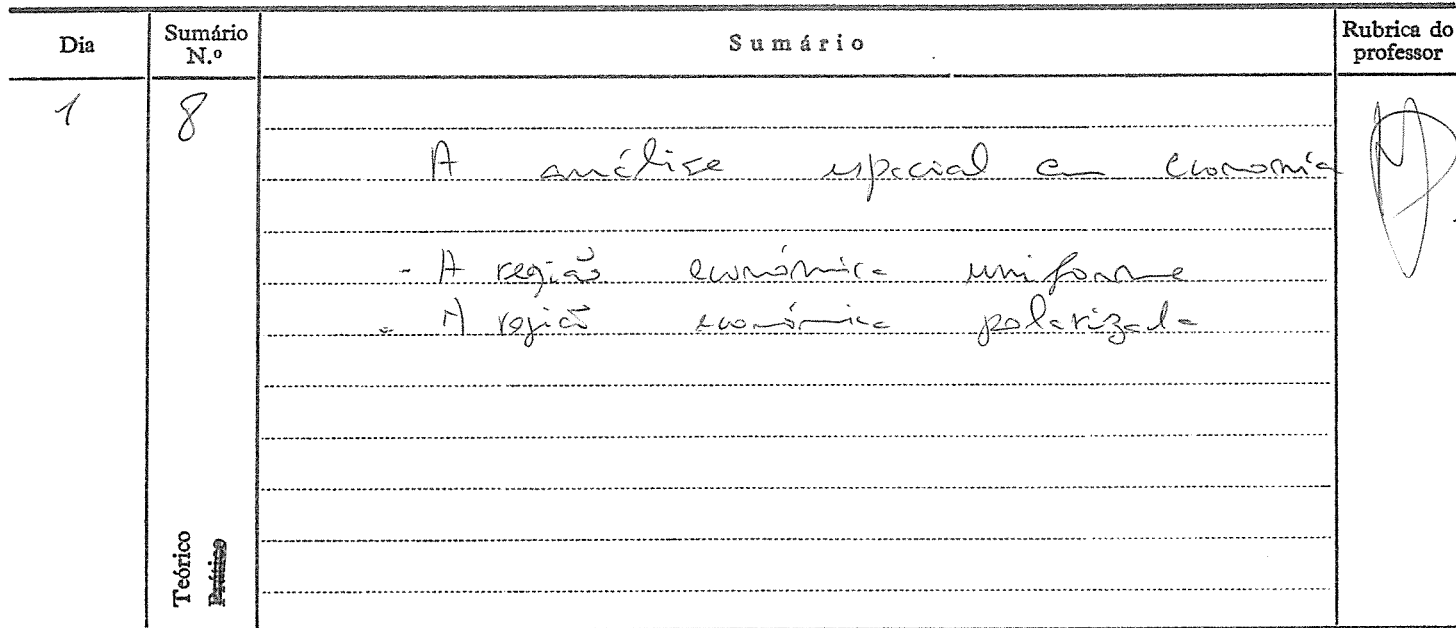 Dia
Sumário N.º
Sumário
Rubrica do professor
1
8
A análise espacial em economia
- A região económica uniforme
- A região económica polarizada
Teórico
Prático